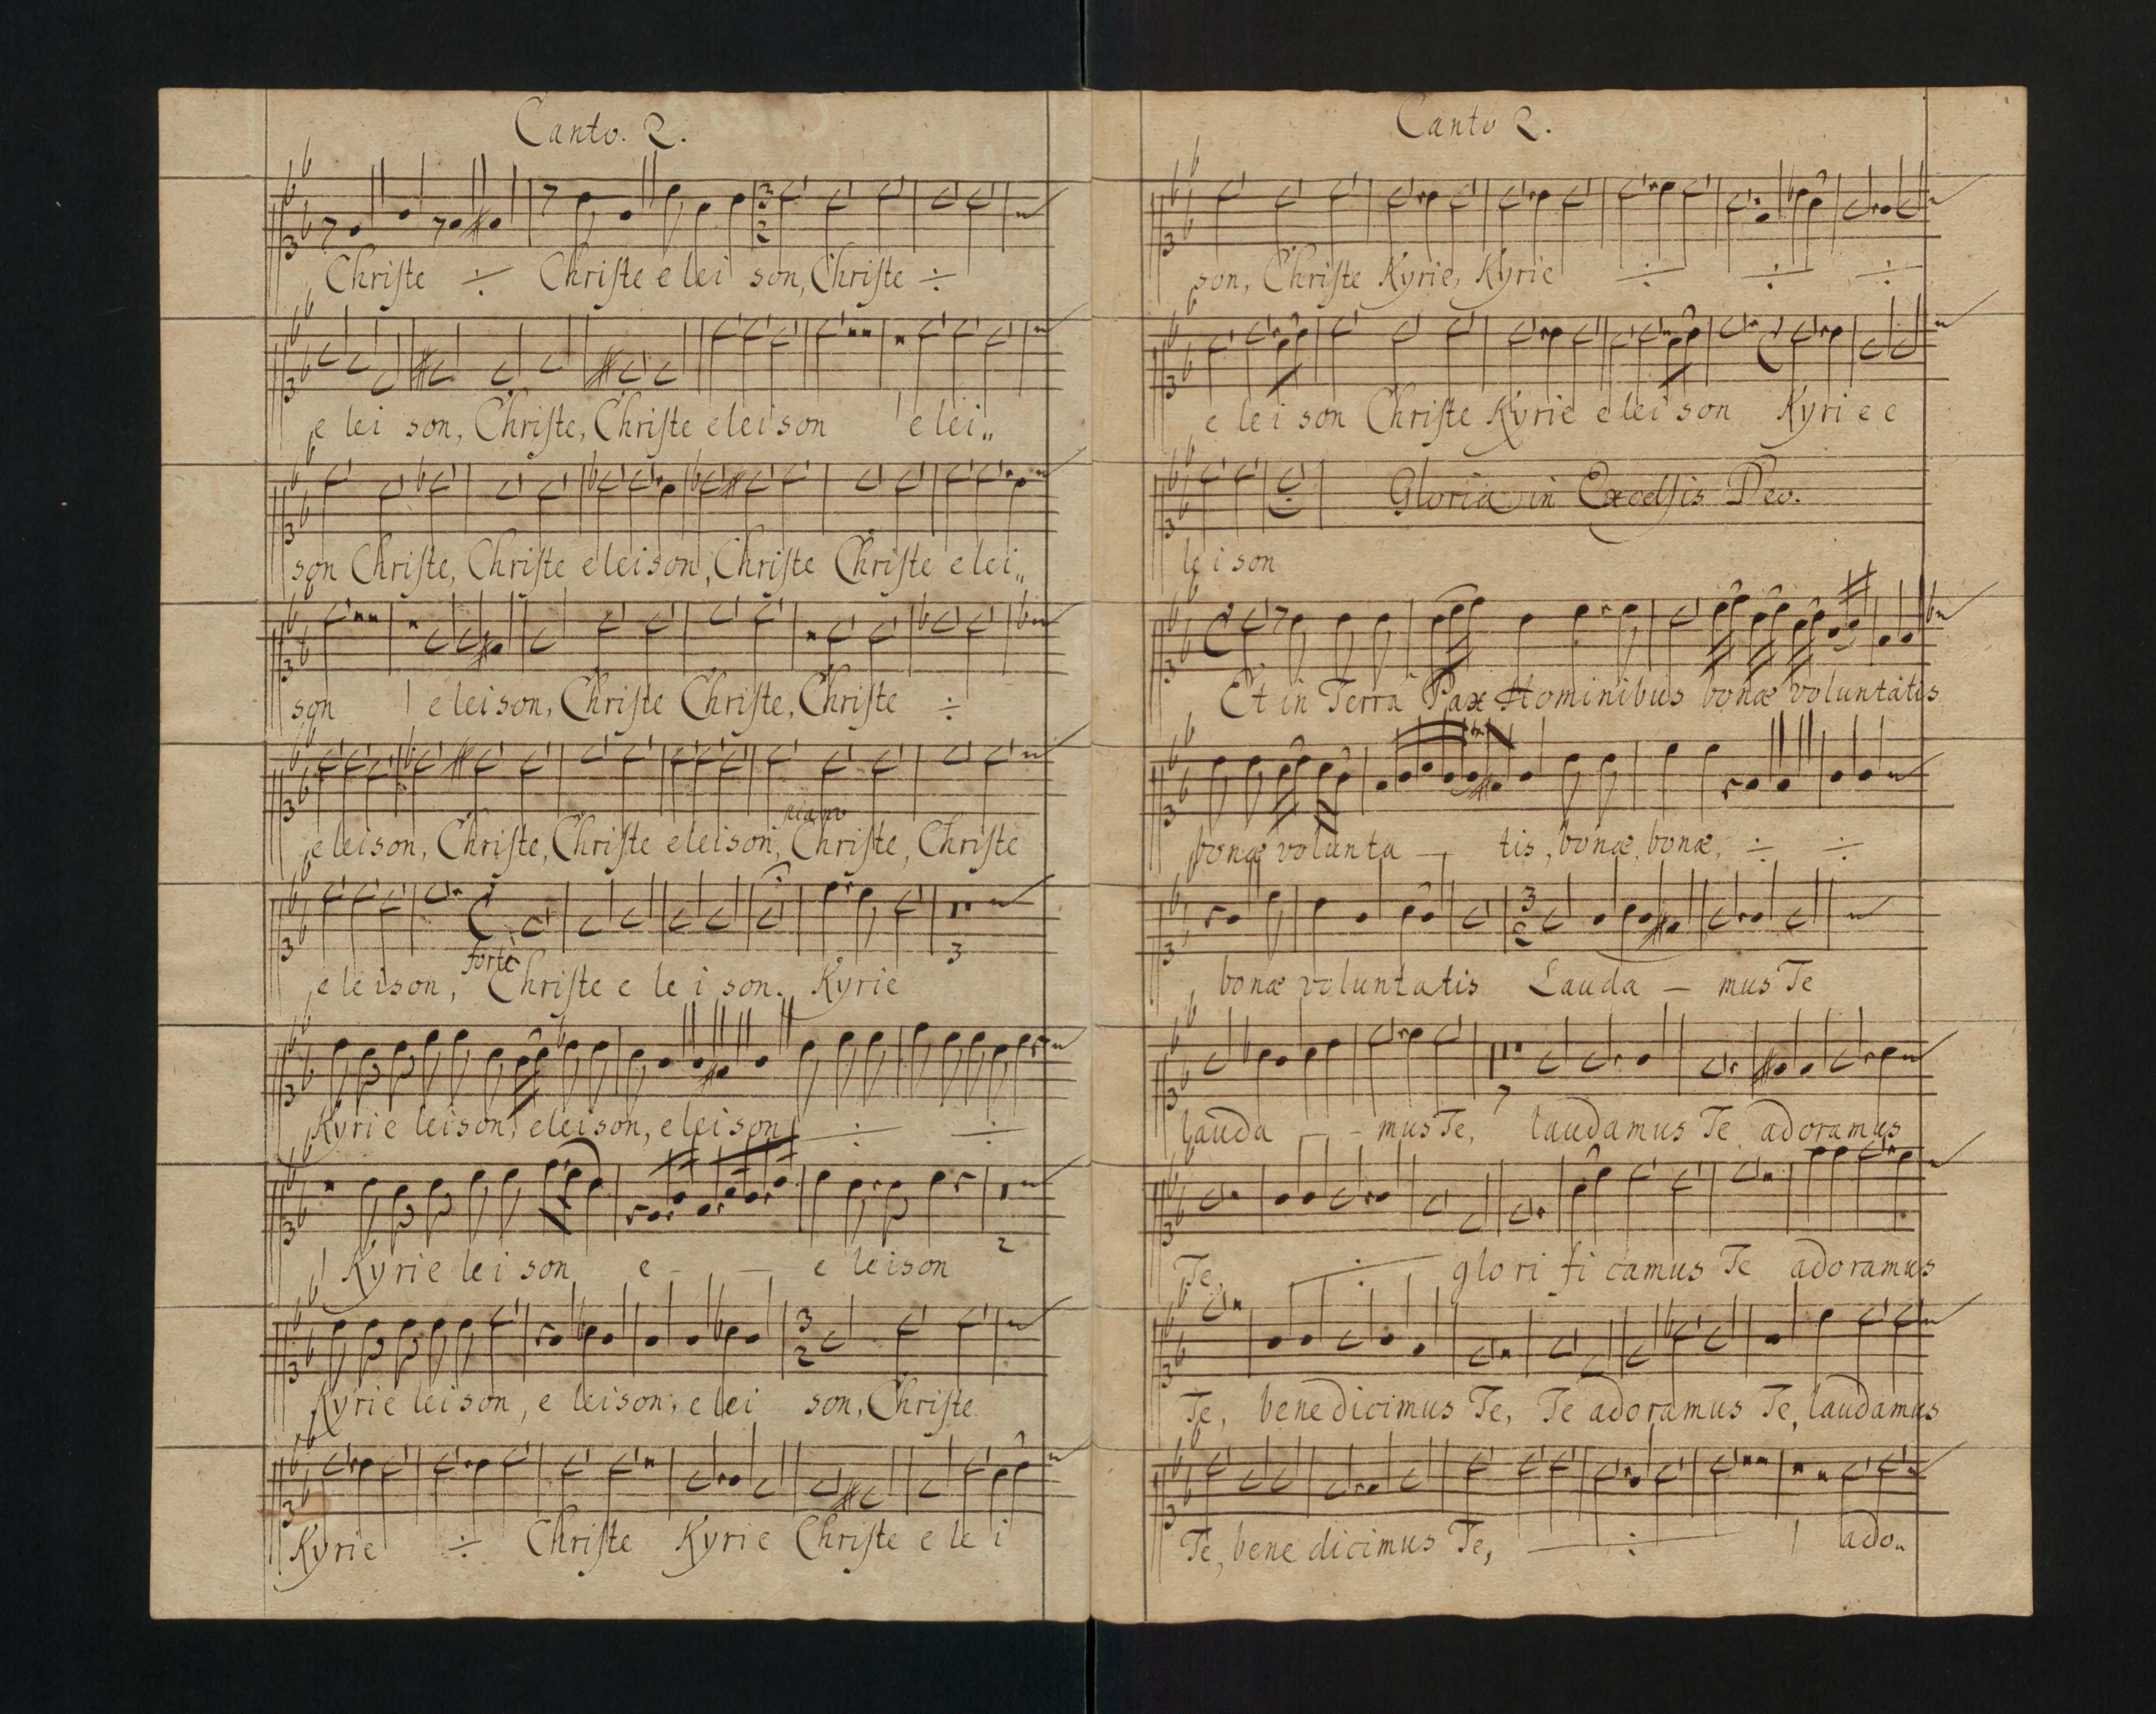 Canto. 2.
Christe ÷ Christe e lei son, Christe ÷
e lei son, Christe, Christe eleison e lei„
son Christe, Christe eleison, Christe Christe elei„
son eleison, Christe Christe, Christe ÷
piano
eleison, Christe, Christe eleison, Christe, Christe
forte
eleison, Christe e le i son. Kyrie
3
Kyrie leison, eleison, eleison ÷ ÷
Kyrie lei son e — — e leison
2
Kyrie leison, e leison, e lei son, Christe
Kyrie ÷ Christe Kyrie Christe e le i
Canto 2.
son, Christe Kyrie, Kyrie ÷ ÷ ÷
e le i son Christe Kyrie e lei son Kyri e e
Gloria in Excelsis Deo.
le i son
Et in Terra Pax Hominibus bonæ voluntatis
bonæ volunta — tis, bonæ, bonæ, ÷ ÷
bonæ voluntatis Lauda — mus Te
7
lauda — - mus Te, laudamus Te adoramus
Te, ÷ glo ri fi camus Te adoramus
Te, benedicimus Te, Te adoramus Te, laudamus
Te, bene dicimus Te, ÷ ado„